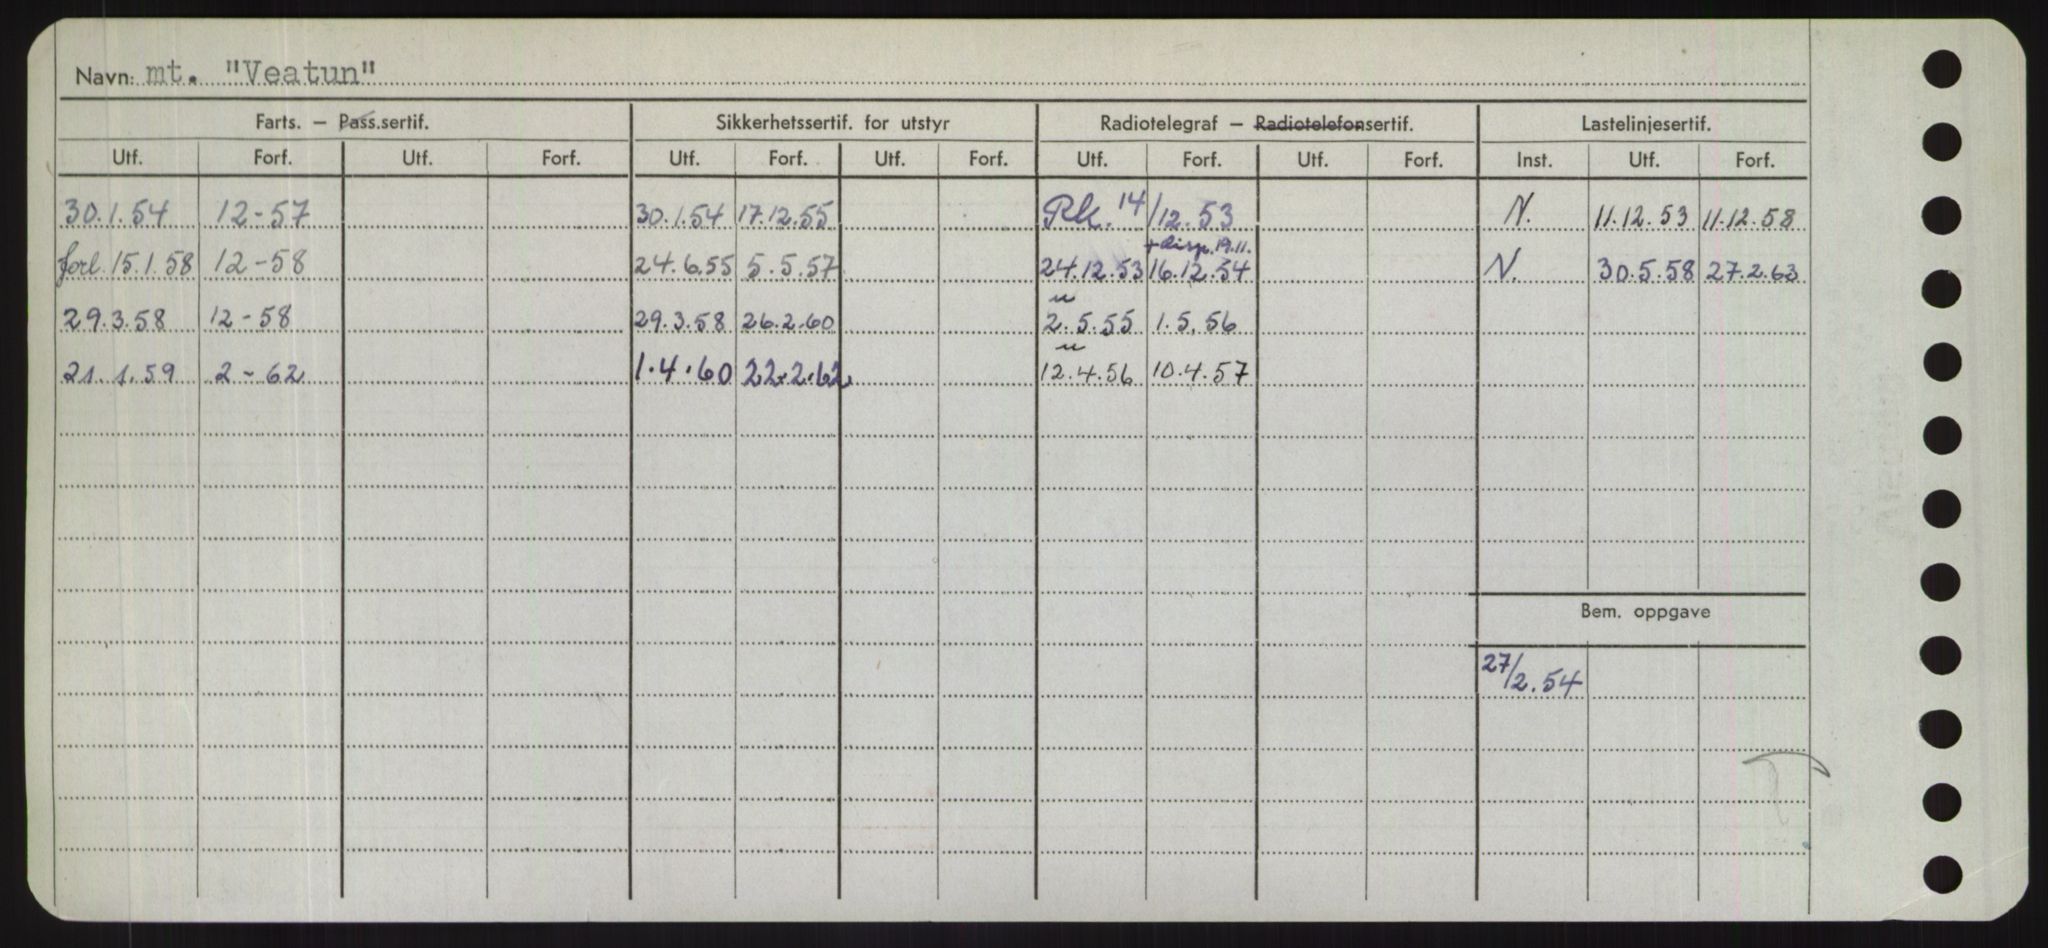 Navn: mt. "Veatun"
Farts. – Pass.sertif. Sikkerhetssertif. for utstyr Radiotelegraf – Radiotelefonsertif. Lastelinjesertif.
Utf. Forf. Utf. Forf. Utf. Forf. Utf. Forf. Utf. Forf. Utf. Forf. Inst. Utf. Forf.
30.1.54 12-57 30.1.54 17.12.55 Rk. 14/12.53 N. 11.12.53 11.12.58
+ disp. 19.11.
forl. 15.1.58 12-58 24.6.55 5.5.57 24.12.53 16.12.54 N. 30.5.58 27.2.63
29.3.58 12-58 29.3.58 26.2.60 2.5.55 1.5.56
21.1.59 2-62 1.4.60 22.2.62 12.4.56 10.4.57
Bem. oppgave
27/2.54